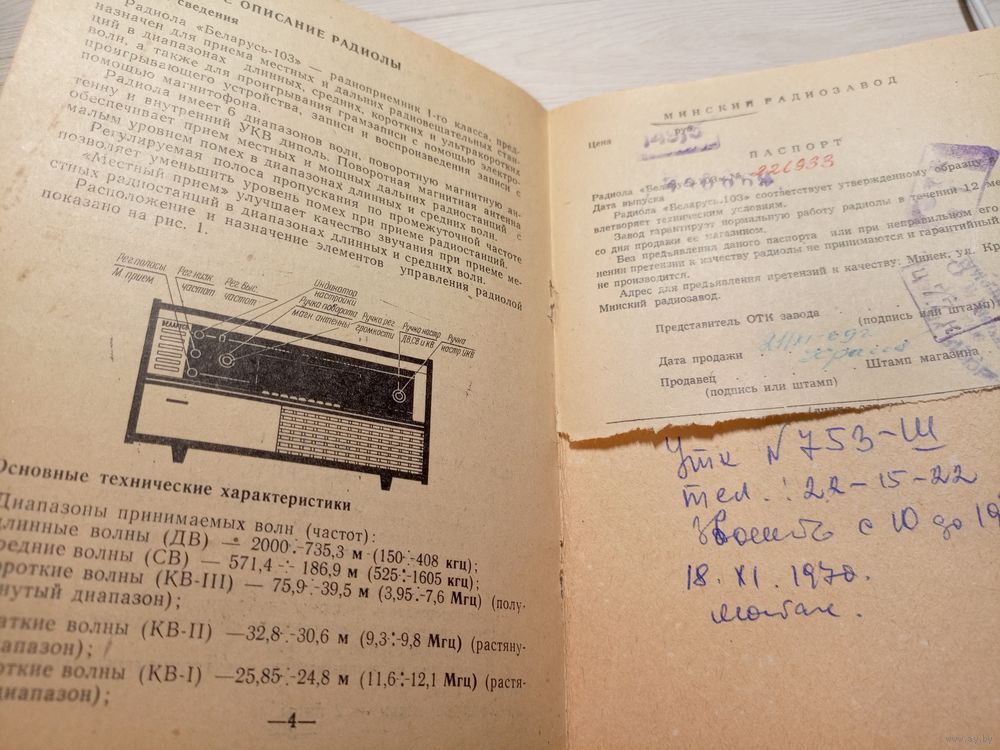 С ОПИСАНИЕ РАДИОЛЫ
сведения
Радиола «Беларусь-103» — радиоприемник 1-го класса, пред-
назначен для приема местных и дальних радиовещательных стан-
ций в диапазонах длинных, средних, коротких и ультракоротких
волн, а также для проигрывания грамзаписи с помощью электро-
проигрывающего устройства, записи и воспроизведения записи с
помощью магнитофона.
Радиола имеет 6 диапазонов волн, поворотную магнитную ан-
тенну и внутренний УКВ диполь. Поворотная магнитная антенна
обеспечивает прием местных и мощных дальних радиостанций с
малым уровнем помех в диапазонах длинных и средних волн.
Регулируемая полоса пропускания по промежуточной частоте
позволяет уменьшить уровень помех при приеме радиостанций.
«Местный прием» улучшает качество звучания при приеме ме-
стных радиостанций в диапазонах длинных и средних волн.
Расположение и назначение элементов управления радиолой
показано на рис. 1.
Рег полосы
М. прием
Рег низк.
частот
Рег выс.
частот
Индикатор
настройки
Ручка поворота
магн антенны
Ручка рег
громкости
Ручка настр
ДВ,СВ и КВ
Ручка
настр УКВ
БЕЛАРУСЬ
Основные технические характеристики
Диапазоны принимаемых волн (частот):
длинные волны (ДВ) — 2000÷735,3 м (150÷408 кгц);
редние волны (СВ) — 571,4÷186,9 м (525÷1605 кгц);
ороткие волны (КВ-III) — 75,9÷39,5 м (3,95÷7,6 Мгц) (полу-
нутый диапазон);
аткие волны (КВ-II) —32,8÷30,6 м (9,3÷9,8 Мгц) (растяну-
апазон);
откие волны (КВ-I) —25,85÷24,8 м (11,6÷12,1 Мгц) (растя-
диапазон);
—4—
МИНСКИЙ РАДИОЗАВОД
Цена руб.
ПАСПОРТ
Радиола «Беларусь-103» № 226933
Дата выпуска
Радиола «Беларусь-103» соответствует утвержденному образцу
влетворяет техническим условиям.
Завод гарантирует нормальную работу радиолы в течении 12 ме
со дня продажи ее магазином.
Без предъявления даного паспорта или при неправильном его
нении претензии к качеству радиолы не принимаются и гарантийный
не производится.
Адрес для предъявления претензий к качеству: Минск, ул. Кр
Минский радиозавод.
Представитель ОТК завода (подпись или штамп)
Дата продажи Штамп магазина
Продавец
(подпись или штамп)
N 753-Ш
тел.: 22-15-22
Звонить с 10 до 19
18. XI. 1970.